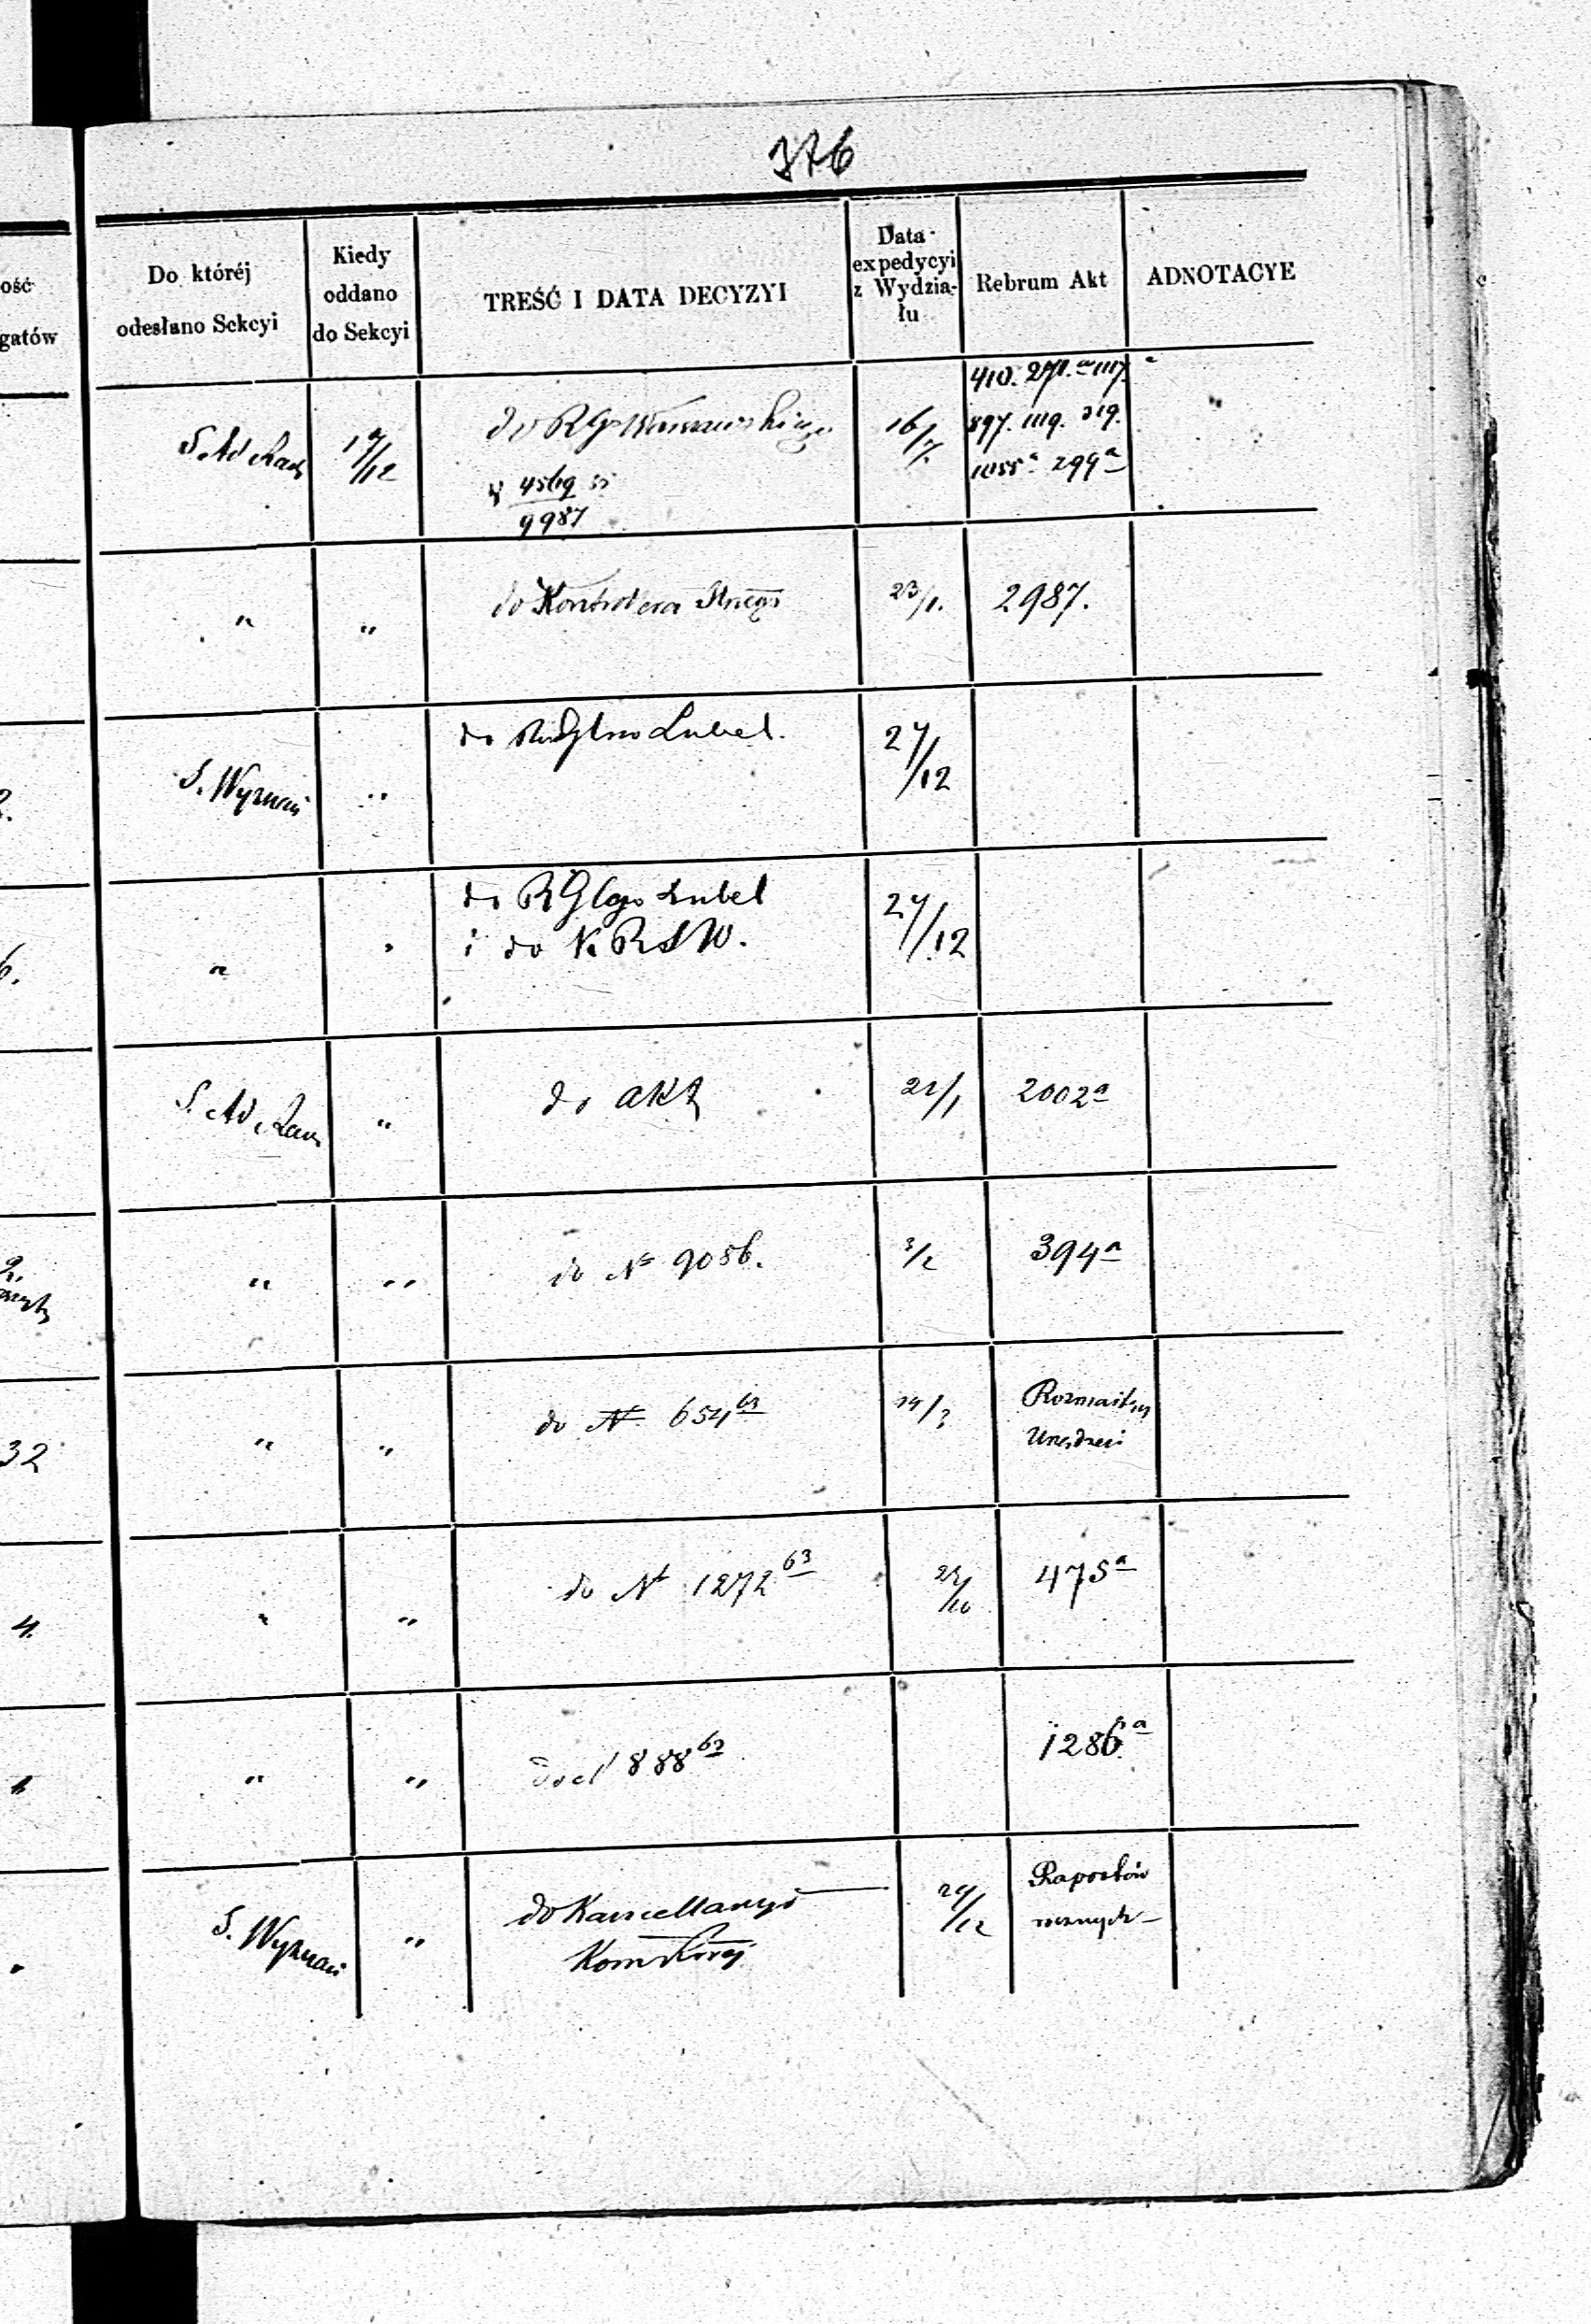 376
ość
gatów
Do któréj
odesłano Sekcyi
Kiedy
oddano
do Sekcyi
TREŚĆ I DATA DECYZYI
Data
expedycyi
z Wydzia-
łu
Rebrum Akt
ADNOTACYE
S. Ad Rach
17/12
do RGo Warszawskiego
4569
9987
16/7.
410. 271.
897. 1119. 319.
1055ª 299ª
"
"
do Kontrolera
23/1.
2987.
S. Wyznań
"
do Lubel.
27/12
6.
"
"
do RGlgo Lubel
i do KRSW.
27/12
S. Ad Rach
"
do akt
22/1
2002ª
"
"
do Nº 9086.
3/2
394ª
32
"
"
do Nº 654 63
14/3
Rozmaitych
Urzędzeń
4.
"
"
do Nº 1272 63
22/10
475ª
"
"
do 888 63
1286ª
S. Wyznań
"
do Kancellaryi
29/12
Raportów
rocznych